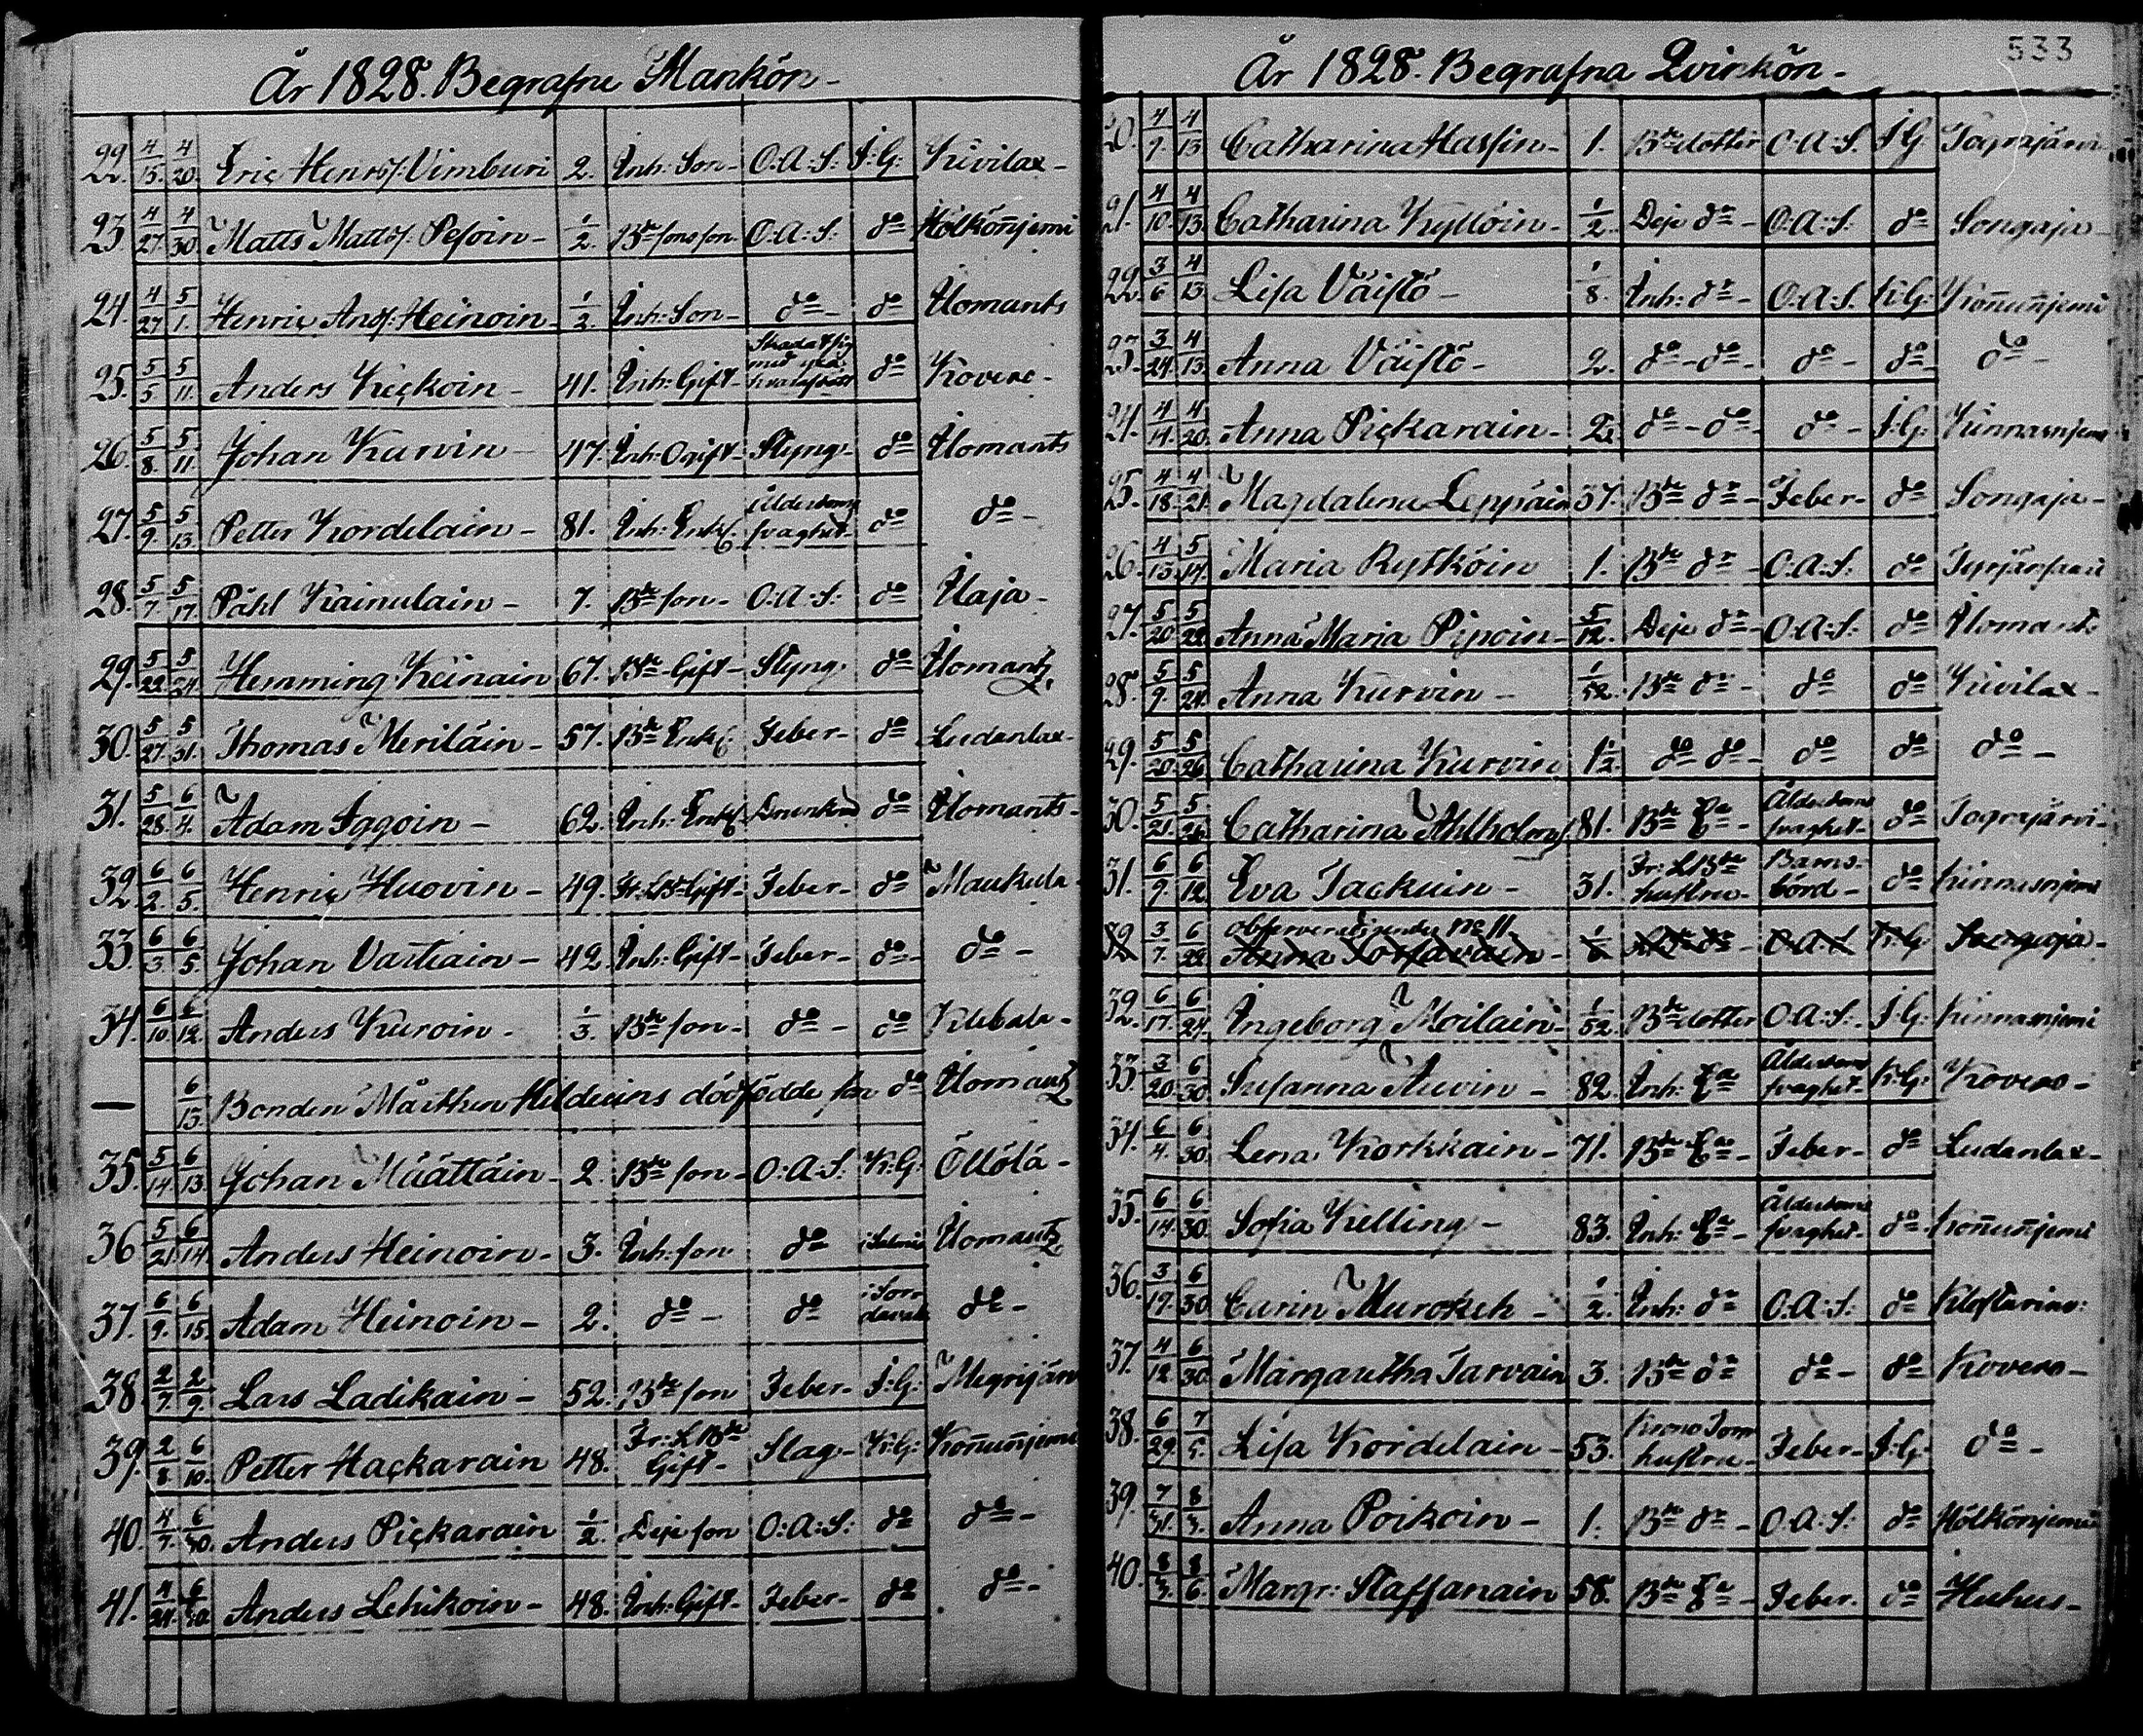 År 1828. Begrafne Mankön -
22. 4/15. 4/20. Eric Henrs: Vimburi 2. Inh: Son - O:A:S: I:G: Kivilax -
23 4/27. 4/30 Matts Matts: Pesoin - 1/2. Bde sons son - O:A:S: do Hölkönjemi
24. 4/27 5/1. Henric Ands: Heinoin 1/2. Inh: Son - do - do Ilomants
25. 5/5. 5/11. Anders Kickoin - 41. Inh: Gift - Skadat sig med do Kovero -
26. 5/8. 5/11. Johan Kurvin - 47. Inh: Ogift - Styng - do Ilomants
27. 5/9. 5/13. Petter Kordelain - 81. Inh: Enkl. Ålderdoms svaghet - do do -
28. 5/7. 5/17. Påhl Kainulain - 7. Bde son - O:A:S: do Ilaja -
29. 5/22. 5/24. Hemming Keinain 67. Bde Gift - Styng. do Ilomantz.
30. 5/27. 5/31. Thomas Meriläin - 57. Bde Enkl Feber - do Ludanlax -
31. 5/28. 6/4. Adam Iggoin - 62. Inh: Enkl Drunknad do Ilomants -
32. 6/2. 6/5. Henric Huovin - 49. Fr: LBde Gift - Feber - do Maukula -
33. 6/3. 6/5. Johan Vartiain - 42. Inh: Gift - Feber - do - do -
34. 6/10. 6/12. Anders Kuroin - 1/3. Bde son - do - do
— 6/13. Bonden Mårthen Hildeins dödfödde son do Ilomantz
35. 5/14. 6/13. Johan Määttäin - 2. Bde son - O:A:S: K:G: Öllölä -
36 5/21. 6/14. Anders Heinoin - 3. Inh: son do Ilomantz
37. 6/9. 6/15. Adam Heinoin - 2. do - do i Sordavala do -
38 2/7. 2/9. Lars Ladikain - 52. Bde son Feber - I:G: Megrijärvi
39. 2/8. 6/10. Petter Hackarain 48. Fr: LBde Gift - Slag - K:G: Konnunjemi
40. 4/7. 6/30. Anders Pickarain 1/2. Deje son O:A:S: do do -
41. 4/24. 6/30. Anders Lehikoin - 48. Inh: Gift - Feber - do do -
533
År 1828. Begrafna Qvinkön -
20. 4/9. 4/13 Catharina Hassin - 1. Bde dotter O:A:S. I:G. Tograjärvi
21. 4/10. 4/13. Catharina Kyllöin - 1/2. Deje dr - O:A:S: do Songaja -
22. 3/6 4/13. Lisa Väistö - 1/8. Inh: dr - O:A:S. K:G: Konnunjemi
23. 3/24. 4/13. Anna Väistö - 2. do - do - do - do - do -
24. 4/14. 4/20. Anna Pickarain - 2. do - do - do - I:G. Kinnasnjemi
25. 4/18. 4/21. Magdalena Leppäin 37. Bde dr - Feber - do Songaja -
26. 4/13. 5/14. Maria Rytköin 1. Bde dr - O:A:S. do
27. 5/20. 5/22. Anna Maria Piipoin - 5/12. Deje dr - O:A:S: do Ilomants
28. 5/9. 5/24. Anna Kurvin - 1/52. Bde dr - do do Kivilax -
29. 5/20. 5/26. Catharina Kurvin 1 1/2. do do - do do do -
30. 5/21. 5/26. Catharina Ahlholm 81. Bde Ea - Ålderdoms svaghet - do Tograjärvi -
31. 6/9. 6/12. Eva Tackuin - 31. Fr: LBde hustru - Barnsbörd - do Kinnasnjemi
32 3/7. 6/22. observeras No 11. Anna O:A:S K:G: Songaja -
32. 6/17. 6/24. Ingeborg Moilain - 1/52. Bde dotter O:A:S. I:G: Kinnasnjemi
33. 3/20. 6/30. Susanna Auvin - 82. Inh: Ea Ålderdoms svaghet - K:G: Kovero -
34. 6/4. 6/30. Lena Korkkain - 71. Bde Ea - Feber - do Ludanlax -
35. 6/14. 6/30. Sofia Kelling - 83. Inh: Ea - Ålderdoms svaghet - do - Konnunjemi
36. 3/19. 6/30. Carin Muroketh - 1/2. Inh: dr O:A:S: do
37. 4/12. 6/30. Margaretha Tarvain 3. Bde dr do - do Kovero -
38. 6/29. 7/5. Lisa Kordelain - 53. Krono Torp hustru - Feber - I:G: do -
39. 7/31. 8/3. Anna Poikoin - 1. Bde dr - O:A:S: do Hölkönjemi
40. 8/3. 8/6. Margr: Staffanain 58. Bde Ea - Feber. do Huhus -